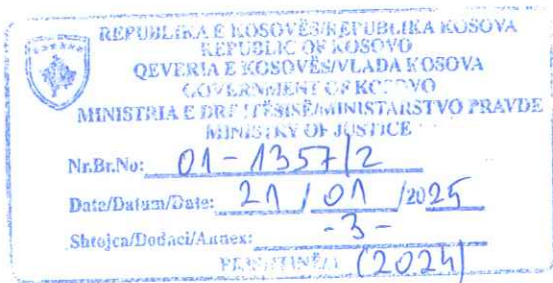 REPUBLIKA E KOSOVËS/REPUBLIKA KOSOVA
REPUBLIC OF KOSOVO
QEVERIA E KOSOVËS/VLADA KOSOVA
GOVERNMENT OF KOSOVO
MINISTRIA E DREJTËSISË/MINISTARSTVO PRAVDE
MINISTRY OF JUSTICE
Nr.Br.No: 01-1357/2
Data/Datum/Date: 21 / 01 /2025
Shtojca/Dodaci/Annex: -3-
(2024)